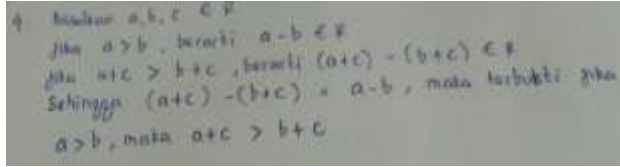 9. Misalkan a, b, c ∈ R
Jika a > b, berarti a - b ∈ R
Jika a+c > b+c, berarti (a+c) - (b+c) ∈ R
Sehingga (a+c) - (b+c) = a-b, maka terbukti jika
a > b, maka a+c > b+c